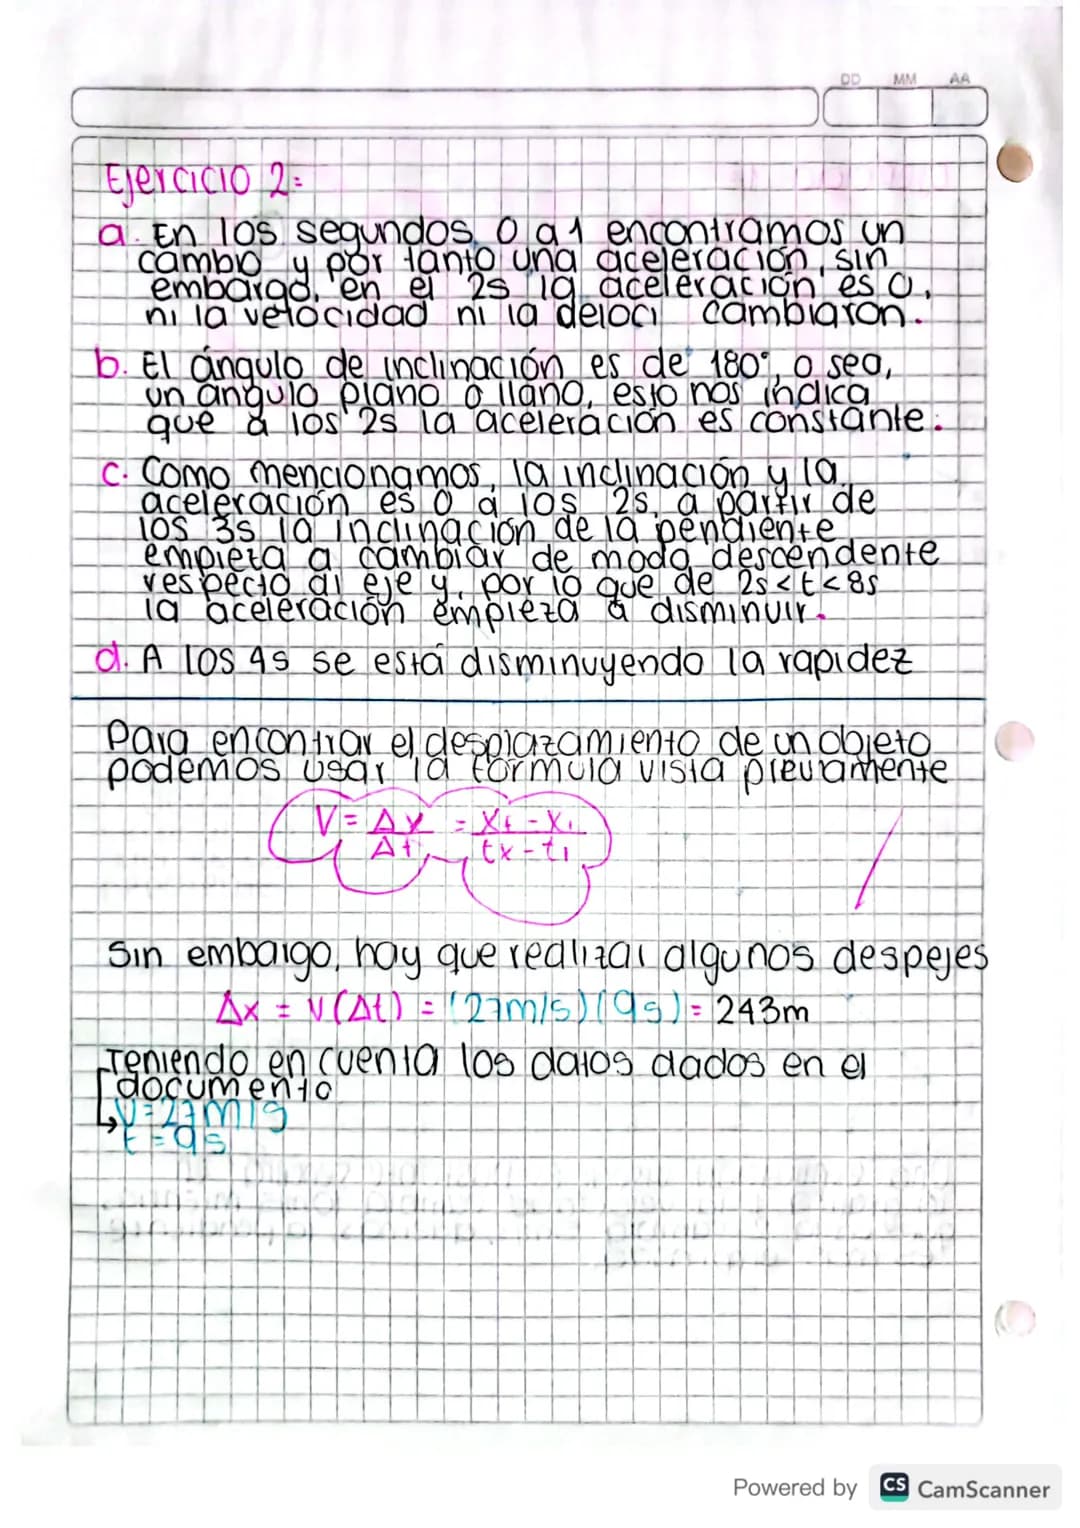 DD MM AA
Ejercicio 2:
a. En los segundos 0 a 1 encontramos un
cambio y por tanto una aceleración, sin
embargo, en el 2s la aceleración es 0,
ni la velocidad ni la deloci cambiaron.
b. El ángulo de inclinación es de 180°, o sea,
un angulo plano o llano, esto nos indica
que a los 2s la aceleración es constante.
c. Como mencionamos, la inclinación y la
aceleración es 0 a los 2s, a partir de
los 3s la inclinación de la pendiente
empieza a cambiar de modo descendente
respecto al eje y, por lo que de 2s<t<8s
la aceleración empieza a disminuir.
d. A los 4s se está disminuyendo la rapidez
Para encontrar el desplazamiento de un objeto
podemos usar la fórmula vista previamente
V = Δx/Δt = xf - xi/tx - ti
Sin embargo, hay que realizar algunos despejes
Δx = V(Δt) = (27m/s)(9s) = 243m
Teniendo en cuenta los datos dados en el
documento
V=27m/s
t=9s
Powered by CS CamScanner